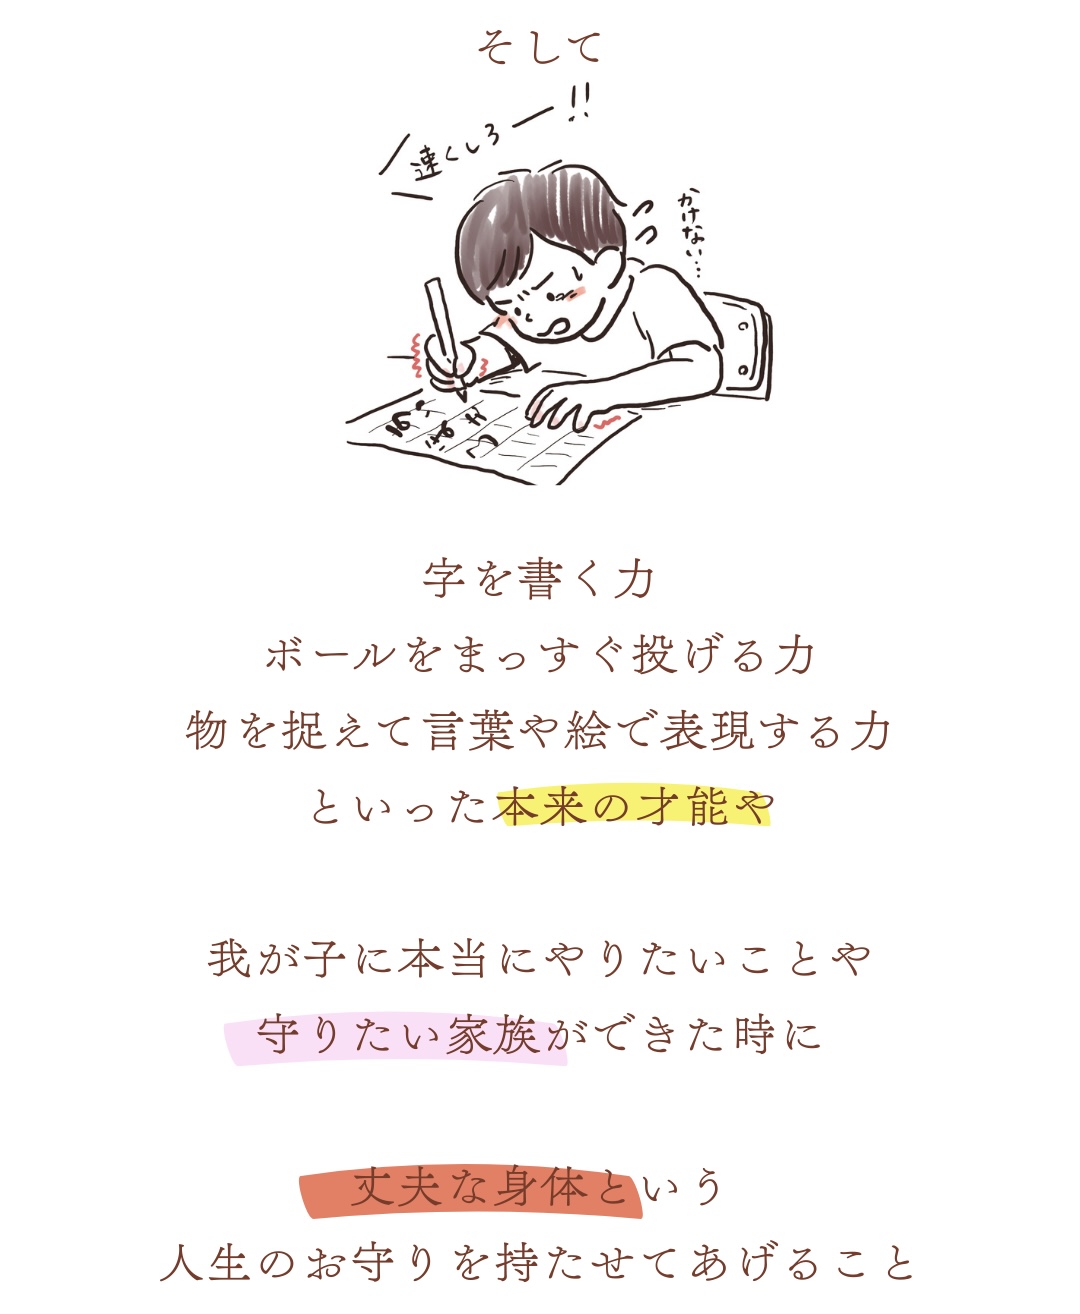 そして
速くしろー!!
かけない…
字を書く力
ボールをまっすぐ投げる力
物を捉えて言葉や絵で表現する力
といった本来の才能や
我が子に本当にやりたいことや
守りたい家族ができた時に
丈夫な身体という
人生のお守りを持たせてあげること